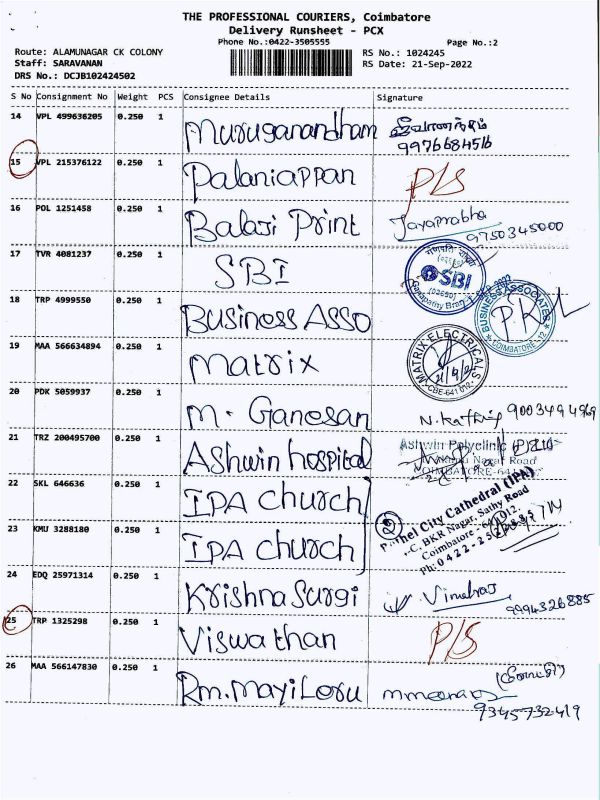 THE PROFESSIONAL COURIERS, Coimbatore
Delivery Runsheet - PCX
Phone No.:0422-3505555 Page No.:2
Route: ALAMUNAGAR CK COLONY RS No.: 1024245
Staff: SARAVANAN RS Date: 21-Sep-2022
DRS No.: DCJB102424502
S No Consignment No Weight PCS Consignee Details Signature
14 VPL 499636205 0.250 1 Muruganandham ஜீவானந்தம்
9976684516
15 VPL 215376122 0.250 1 Palaniappan P/S
16 POL 1251458 0.250 1 Balaji Print Jayaprabha
9750345000
17 TVR 4081237 0.250 1 SBI
गणपति
SBI
(02690)
Ganapathy Branch
18 TRP 4999550 0.250 1 Business Asso
BUSINESS ASSOCIATES
COIMBATORE-12
P.K
19 MAA 566634894 0.250 1 Matrix
MATRIX ELECTRICALS
CBE-641 012
20 PDK 5059937 0.250 1 M. Ganesan 9003494969
21 TRZ 200495700 0.250 1 Ashwin hospital
Ashwin Polyclinic (P) Ltd
Nagar Road
COIMBATORE-641
22 SKL 646636 0.250 1 IPA church
City Cathedral (IPA)
BKR Nagar, Sathy Road
Coimbatore - 641 012.
23 KMU 3288180 0.250 1 IPA church
24 EDQ 25971314 0.250 1 Krishna Surgi
9994326885
25 TRP 1325298 0.250 1 Viswathan P/S
26 MAA 566147830 0.250 1 Rm. Mayileru
9345732419